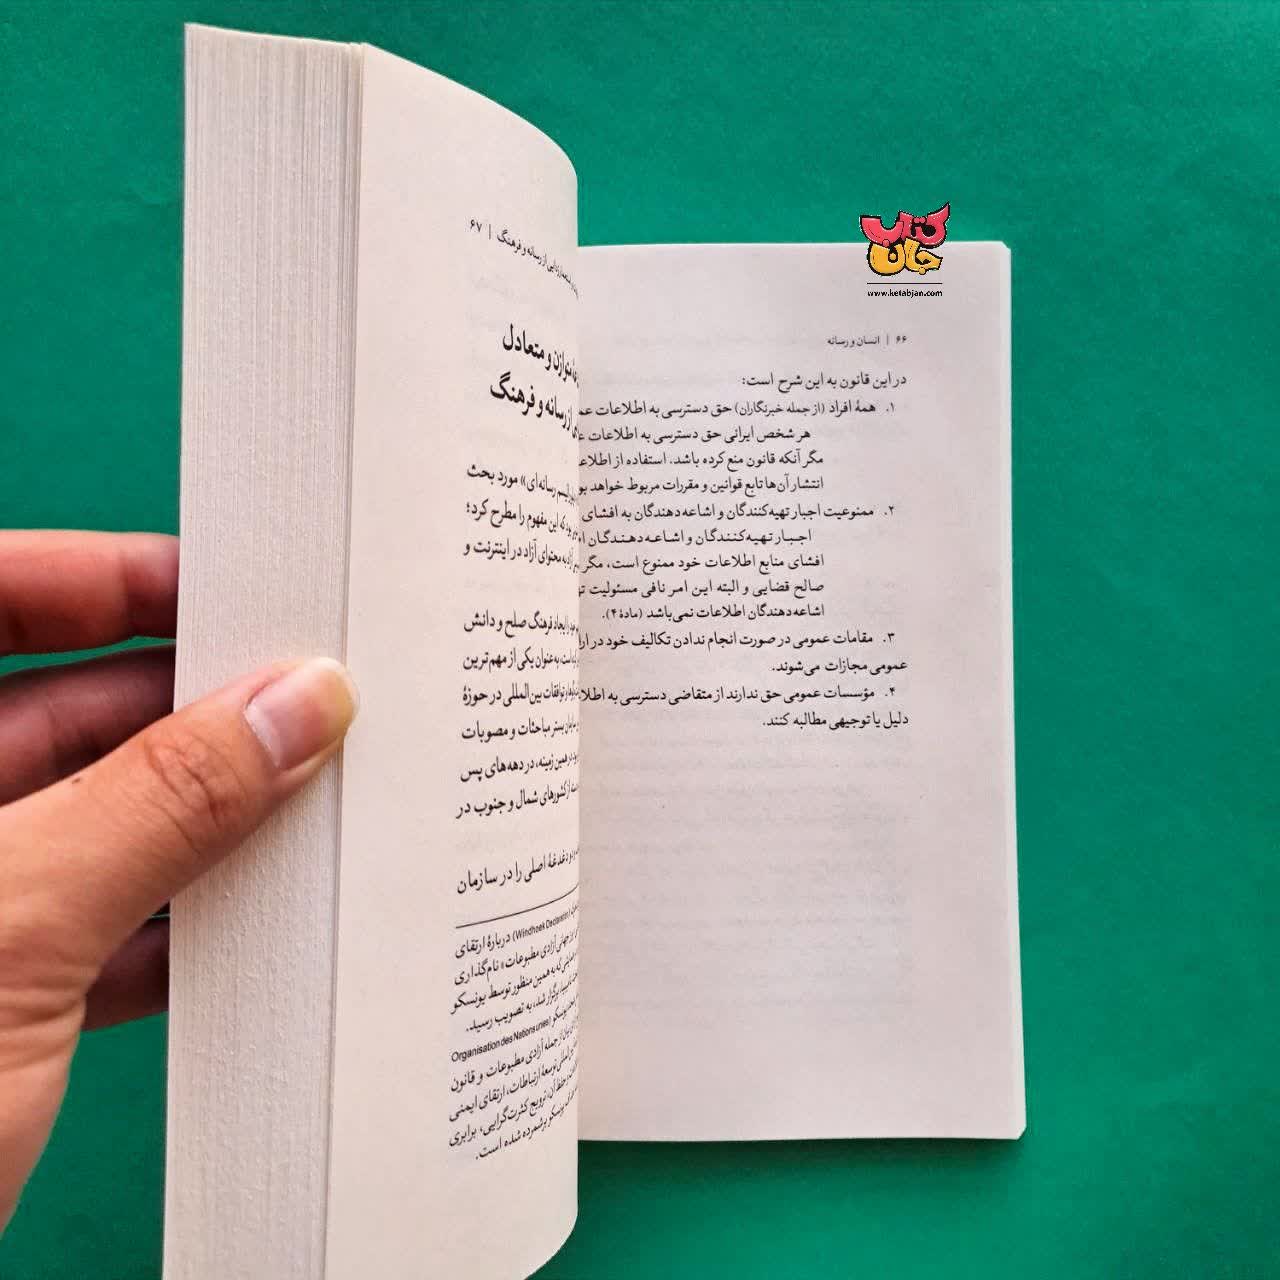 کتاب
جان
www.ketabjan.com
۶۶ | انسان و رسانه
در این قانون به این شرح است:
۱. همهٔ افراد (از جمله خبرنگاران) حق دسترسی به اطلاعات
هر شخص ایرانی حق دسترسی به اطلاعات
مگر آنکه قانون منع کرده باشد. استفاده از
انتشار آن‌ها تابع قوانین و مقررات مربوط خواهد
۲. ممنوعیت اجبار تهیه‌کنندگان و اشاعه‌دهندگان به افشای
اجبار تهیه‌کنندگان و اشاعه‌دهندگان
افشای منابع اطلاعات خود ممنوع است، مگر
صالح قضایی و البته این امر نافی مسئولیت
اشاعه‌دهندگان اطلاعات نمی‌باشد (مادهٔ ۴).
۳. مقامات عمومی در صورت انجام ندادن تکالیف خود در
عمومی مجازات می‌شوند.
۴. مؤسسات عمومی حق ندارند از متقاضی دسترسی به
دلیل یا توجیهی مطالبه کنند.
از رسانه و فرهنگ | ۶۷
متوازن و متعادل
از رسانه و فرهنگ
رسانه‌ای» مورد بحث
که این مفهوم را مطرح کرد؛
آزاد به محتوای آزاد در اینترنت و
ایجاد فرهنگ صلح و دانش
است، به عنوان یکی از مهم‌ترین
توافقات بین‌المللی در حوزهٔ
بستر مباحثات و مصوبات
در همین زمینه، در دهه‌های پس
از کشورهای شمال و جنوب در
دغدغهٔ اصلی را در سازمان
(Windhoek Declaration) دربارهٔ ارتقای
جهانی آزادی مطبوعات» نام‌گذاری
که به همین منظور توسط یونسکو
برگزار شد، به تصویب رسید.
یونسکو (Organisation des Nations unies
از جمله آزادی مطبوعات و قانون
توسعهٔ ارتباطات، ارتقای ایمنی
و حفظ آن، ترویج کثرت‌گرایی، برابری
یونسکو برشمرده شده است.